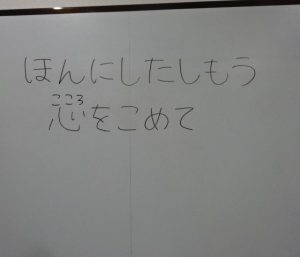 ほんにしたしもう
こころ
心をこめて